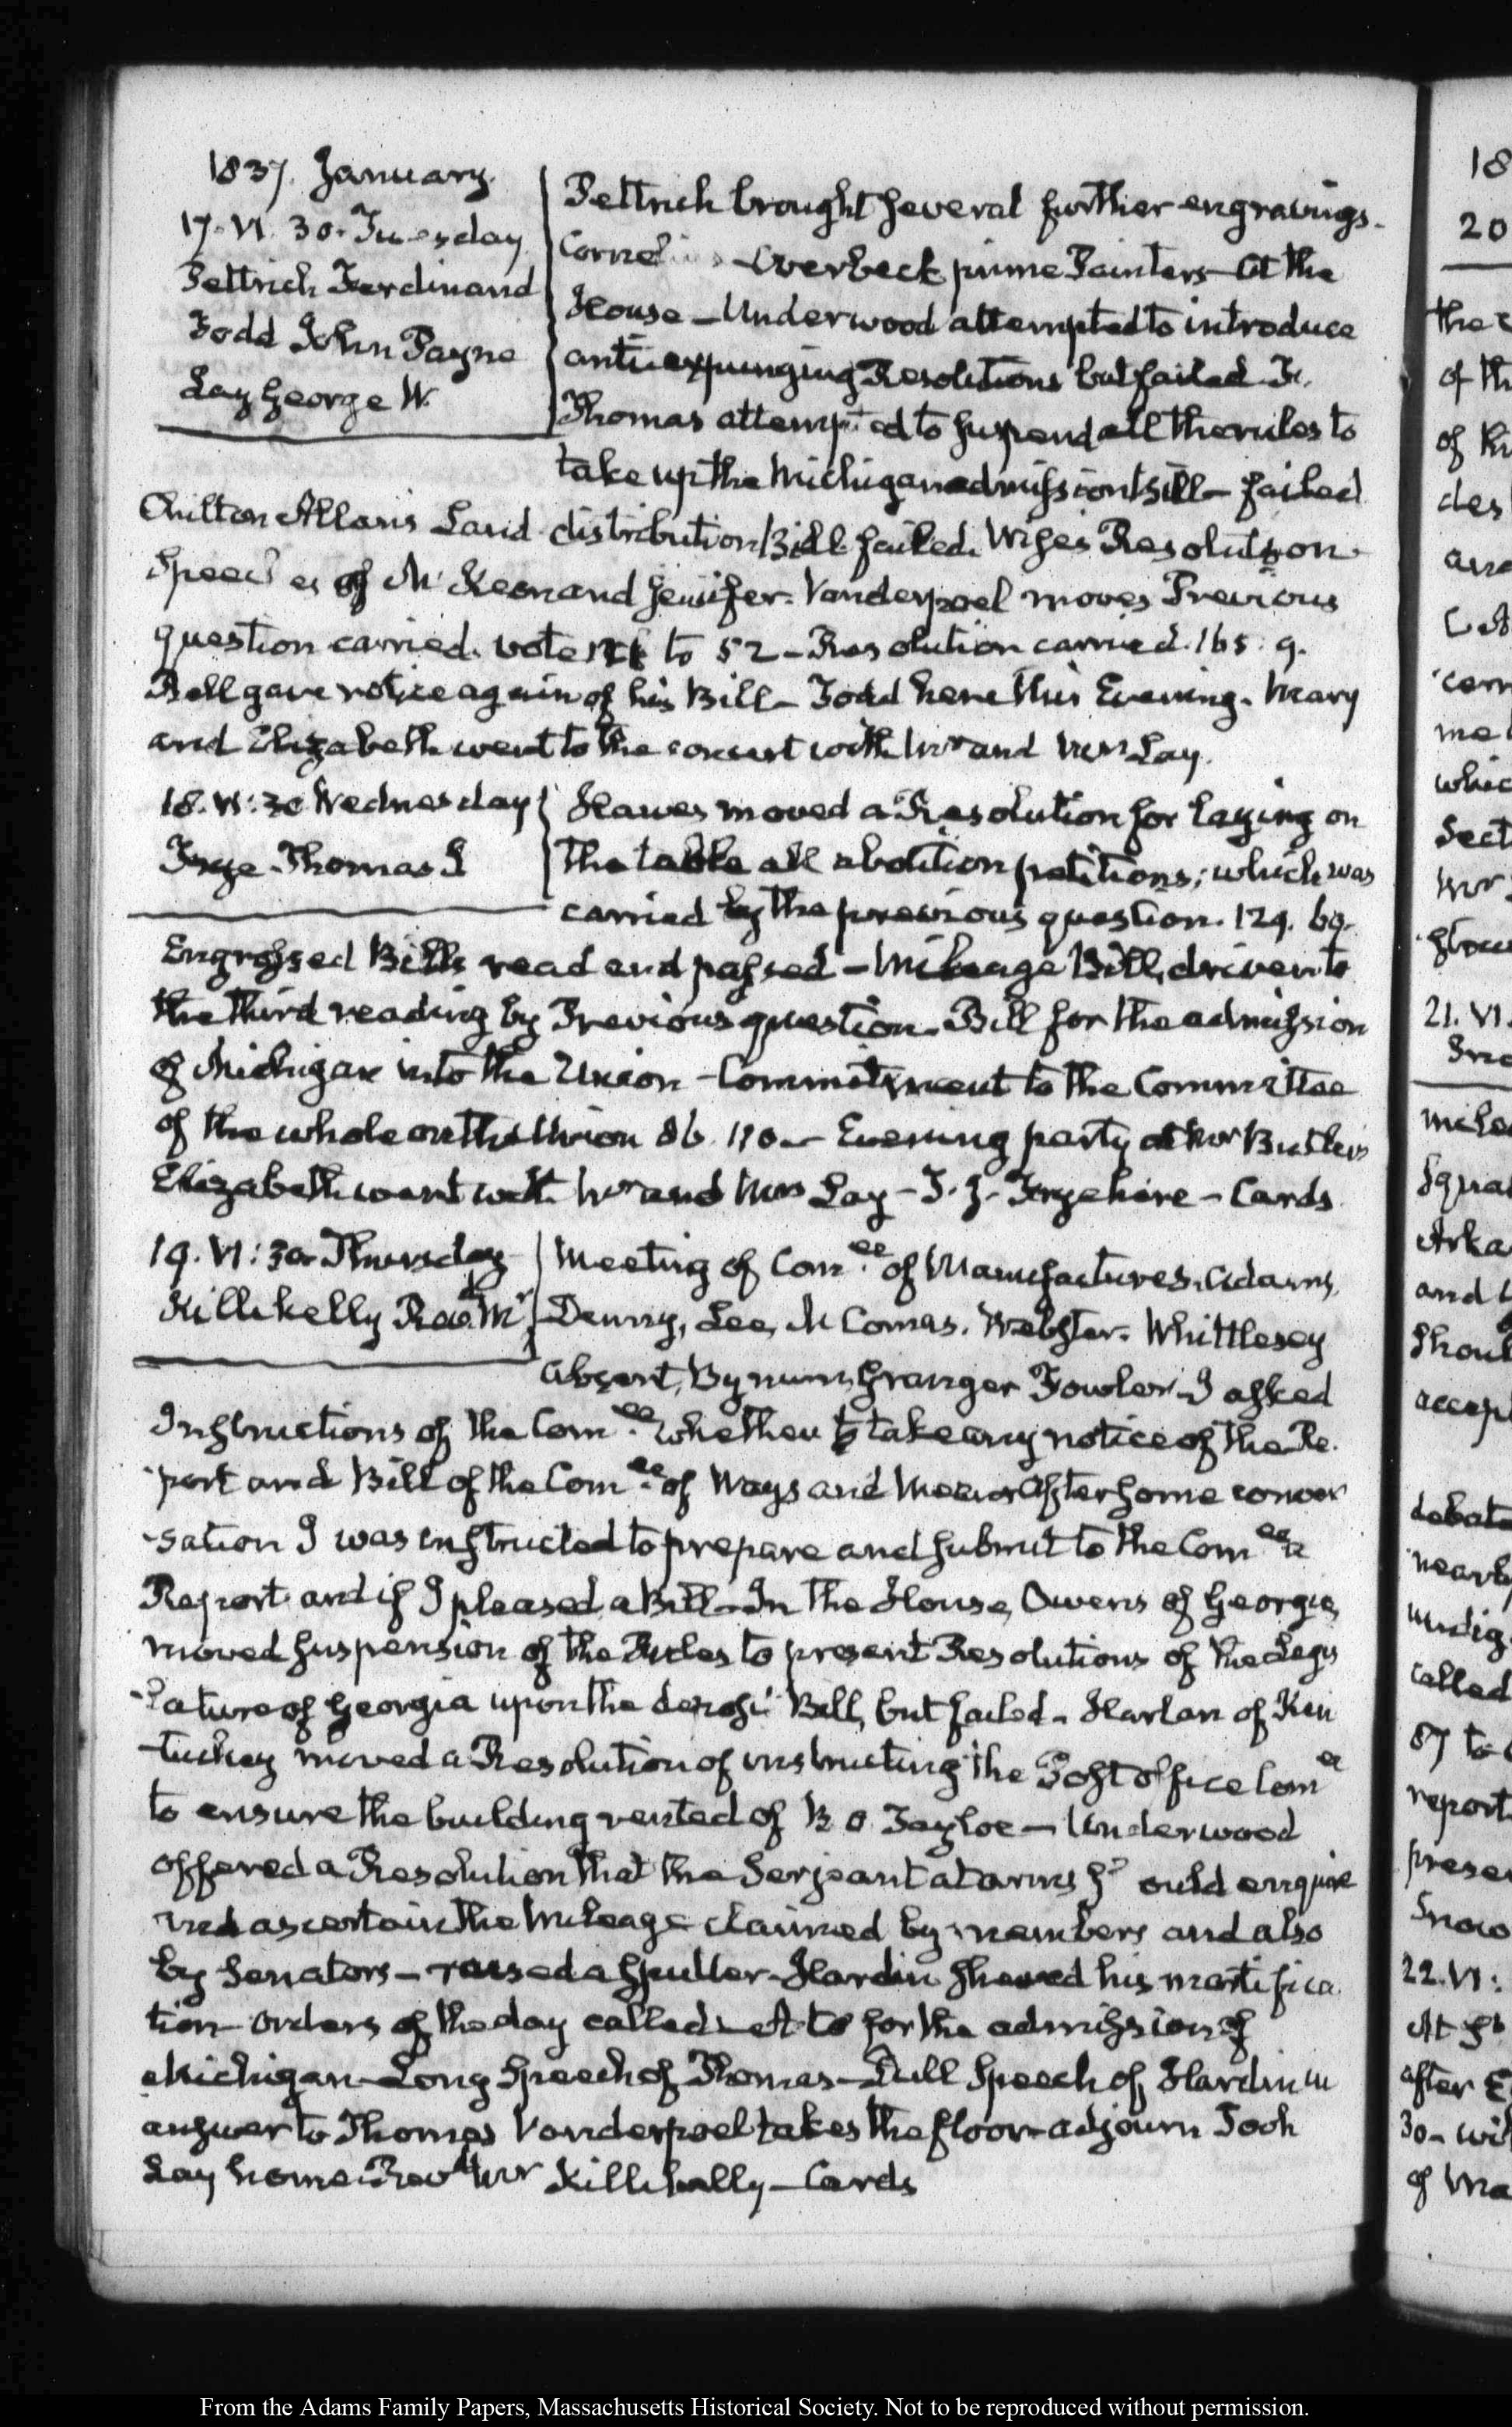 1837. January.
17. VI. 30. Tuesday
Pettrich Ferdinand
Todd John Payne
Lay George W.
Pettrich brought several further engravings.
Overbeck prime Painters— At the
House — Underwood attempted to introduce
anti expunging Resolutions but failed. Fr.
Thomas attempted to suspend all the rules to
take up the Michigan admission Bill — failed
Chilton Allan's Land distribution Bill failed. Wise's Resolution
Speeches of McKeon and Jenifer. Vanderpoel moves Previous
question carried. vote to 52 — Resolution carried. 165. 9.
Bell gave notice again of his Bill — Todd here this Evening. Mary
and Elizabeth went to the concert with Mr and Mrs Lay.
18. VI: 30 Wednesday
Frye Thomas J
Hawes moved a Resolution for laying on
the table all abolition petitions; which was
carried by the previous question. 129. 69.
Engrossed Bills read and passed — Mileage Bill, driven to
the third reading by Previous question. Bill for the admission
of Michigan into the Union — Commitment to the Committee
of the whole on the Union 86. 110 — Evening party at Mr Butler's
Elizabeth went with Mr and Mrs Lay — T. J. Frye here — Cards
19. VI: 30. Thursday
Killikelly Revd. Mr
Meeting of Comee. of Manufactures. Adams,
Denny, Lee, McComas. Webster. Whittlesey
absent, Bynum, Granger Fowler. I asked
Instructions of the Comee. whether to take any notice of the Re.
port and Bill of the Comee. of Ways and Means after some conver
-sation I was instructed to prepare and submit to the Comee a
Report and if I pleased a Bill — In the House, Owens of Georgia,
moved suspension of the Rules to present Resolutions of the Legis
-lature of Georgia upon the deposit Bill, but failed — Harlan of Ken
-tuckey moved a Resolution of instructing the Post office Comee
to ensure the building rented of B O Tayloe — Underwood
offered a Resolution that the Serjeant at arms should enquire
and ascertain the Mileage claimed by members and also
by Senators — raised a sputter — Hardin shewed his mortifica
tion — orders of the day called — Act for the admission of
Michigan — Long Speech of Thomas — Dull Speech of Hardin in
answer to Thomas Vanderpoel takes the floor — adjourn Took
Lay home. Revd Mr Killikelly — Cards
18
20
the
of th
of
des
me
whic
Sect
Mr
21. VI.
Sno
and
debate
called
87 to
report
prese
Snow
22. VI:
At St
after
30 — wi
of Ma
From the Adams Family Papers, Massachusetts Historical Society. Not to be reproduced without permission.